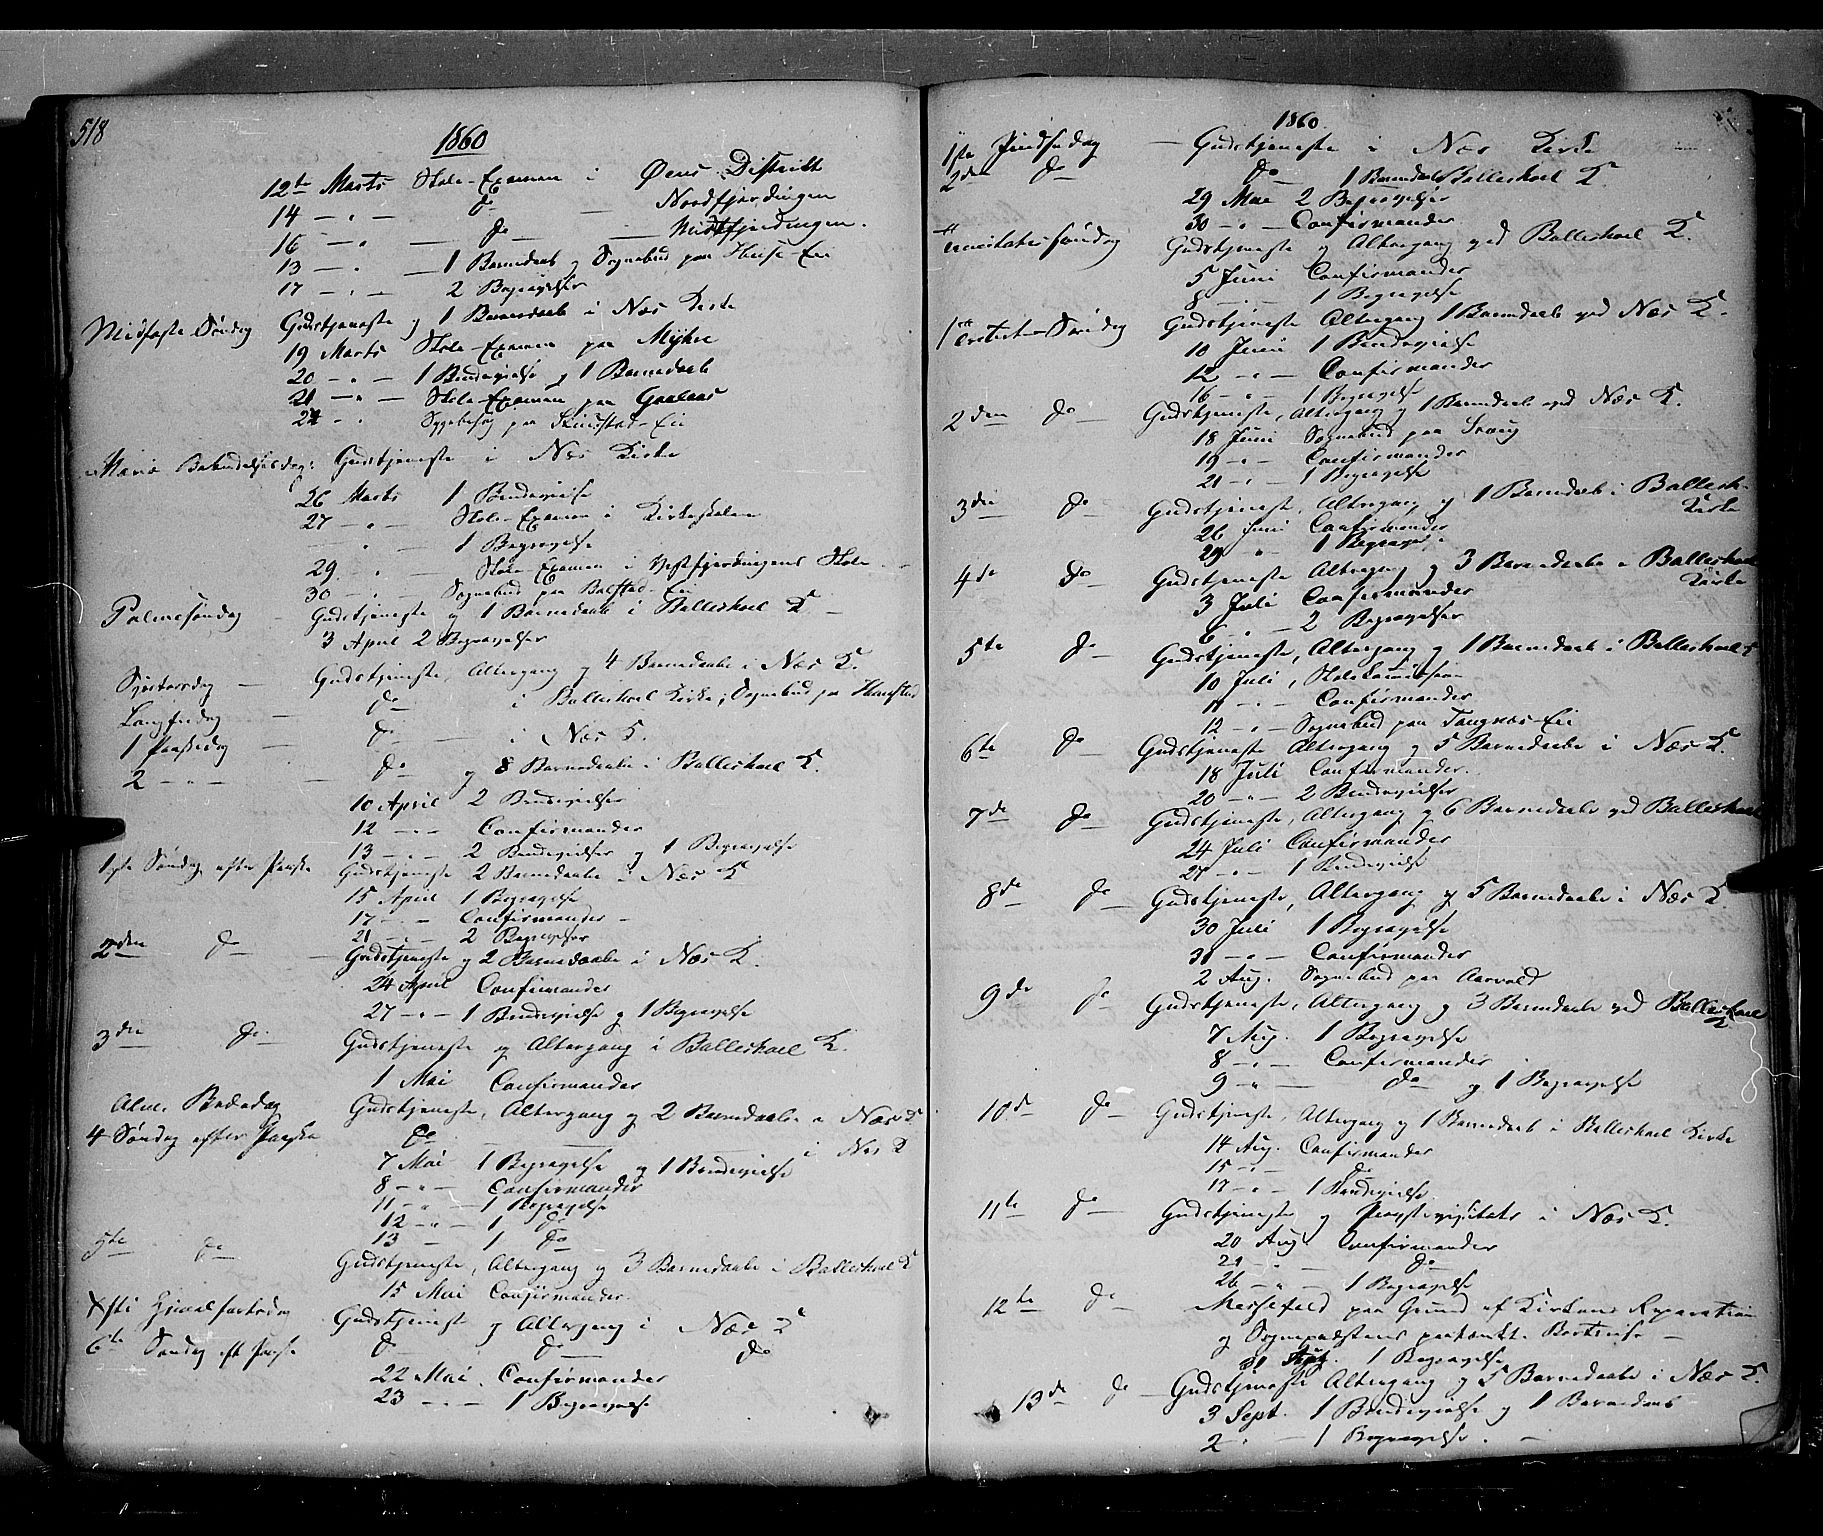 518
1860
12te Marts Skole-Examen i Øens Distrikt
14 — " — do — Nordfjerdingen
16 — " — do — Midtfjerdingen.
13 — " — 1 Barnedaab og Sognebud paa Huse-Eie
17 — " — 2 Begravelser
Midfaste Søndag Gudstjeneste og 1 Barnedaab i Næs Kirke
19 Marts Skole-Examen paa Myhre
20 — " — 1 Brudevielse og 1 Barnedaab
21 — " — Skole-Examen paa
24 " Sygebesøg paa
Mariæ Bebudelsesdag: Gudstjeneste i Næs Kirke
26 Marts 1 Brudevielse
27 — " — Skole-Examen i Kirkeskolen
— " — 1 Begravelse
29 — " — Skole-Examen i Vestfjerdingens Skole
30 — " — Sognebud paa Eie
Palmesøndag Gudstjeneste og 1 Barnedaab i Ballishoel K —
3 April 2 Begravelser
Skjertorsdag — Gudstjeneste, Altergang og 4 Barnedaabe i Næs K.
Langfredag — do i Ballishoel Kirke; Sognebud paa
1 Paaskedag — do — i Næs K.
2 — " — — do og 8 Barnedaabe i Ballishoel K.
10 April 2 Brudevielser
12 — " — Confirmander
13 — " — 2 Brudevielser og 1 Begravelse
1ste Søndag efter Paaske Gudstjeneste 2 Barnedaabe i Næs K
15 April 1 Begravelse
17 — " — Confirmander —
21 — " — 2 Begravelser
2den do — Gudstjeneste og 2 Barnedaabe i Næs K.
24 April Confirmander
27 — " — 1 Brudevielse og 1 Begravelse
3die do — Gudstjeneste og Altergang i Ballishoel K.
1 Mai Confirmander
Alm. Bededag Gudstjeneste, Altergang og 2 Barnedaabe i Næs K
4 Søndag efter Paaske do — i Næs K
7 Mai 1 Begravelse og 1 Brudevielse
8 — " — Confirmander
11 — " — 1 Begravelse
12 — " — 1 do
13 — 1 do
5te do Gudstjeneste, Altergang og 3 Barnedaabe i Ballishoel K
15 Mai Confirmander
Xsti Himmelfartsdag Gudstjeneste og Altergang i Næs K
6te Søndag eft Paaske do do do
22 Mai. Confirmander
23 — " — 1 Begravelse
1860.
1ste Pindsedag — Gudstjeneste i Næs Kirke
2den do do 1 Barnedaab Ballishoel K.
29 Mai 2 Begravelser
30 — " — Confirmander
Trinitatis søndag Gudstjeneste og Altergang ved Ballishoel K.
5 Juni Confirmander
8 — " — 1 Begravelse
Gudstjeneste Altergang 1 Barnedaab ved Næs K.
10 Juni 1 Brudevielse
12 — " — Confirmander
16 — " — 1 Begravelse
2den do — Gudstjeneste, Altergang og 1 Barnedaab ved Næs K.
18 Juni Sognebud paa
19 — " — Confirmander
21 — " — 1 Begravelse
3die do — Gudstjeneste, Altergang, og 1 Barnedaab i Ballish-
Kirke
26 Juni Confirmander
29 " 1 Begravelse
4de do — Gudstjeneste Altergang og 3 Barnedaabe i Ballishoel
Kirke
3 Juli Confirmander
6 — " — 2 Begravelser
5te do — Gudstjeneste, Altergang og 1 Barnedaab i Ballishoel K
10 Juli, Skolekommission
11 — " — Confirmander
12 — " — Sognebud paa Tangnæs-Eie
6te do — Gudstjeneste Altergang og 5 Barnedaabe i Næs K.
18 Juli Confirmander.
20 — " — 2 Brudevielser
7de do — Gudstjeneste, Altergang og 6 Barnedaabe ved Ballishoel
24 Juli Confirmander
27 — " — 1 Brudevielse
8de do — Gudstjeneste, Altergang og 5 Barnedaabe i Næs K.
30 Juli 1 Begravelse
31 — " — Confirmander
2 Aug. Sognebud paa Aarvold
9de do Gudstjeneste, Altergang og 3 Barnedaabe ved Ballishoel
K
7 Aug. 1 Begravelse
8 — " — Confirmander
9 — " — do og 1 Begravelse
10de do — Gudstjeneste, Altergang og 1 Barnedaab i Ballishoel Kirke
14 Aug. Confirmander
15 — " — do
17 — " — 1 Brudevielse
11te do — Gudstjeneste og Provstevisitats i Næs K.
20 Aug. Confirmander
21 — " — do
26 — " — 1 Begravelse
12te do — Messefald paa Grund af Kirkens Reparation
og Sognepræstens Bortreise —
31 Aug. 1 Begravelse
13de do — Gudstjeneste Altergang og 5 Barnedaabe i Næs K.
3 Sept. 1 Brudevielse og 1 Barnedaab
2 — " — 1 Begravelse. —